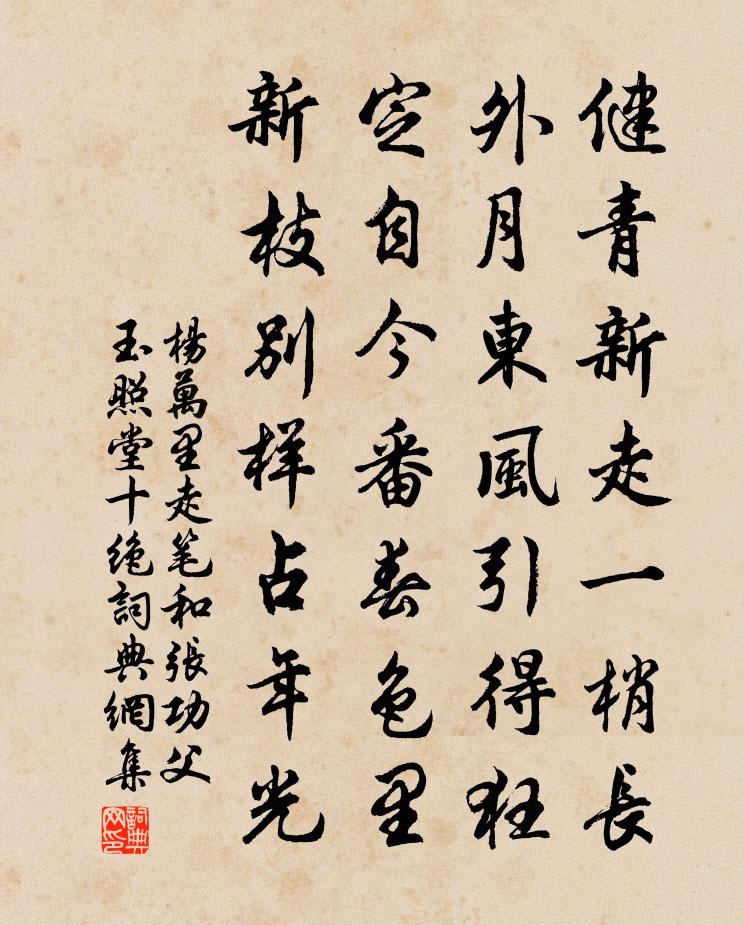 健青新走一梢長
外月東風引得狂
定自今番春色里
新枝別樣占年光
楊萬里走笔和張功父
玉照堂十絶詞典網集
詞典网印